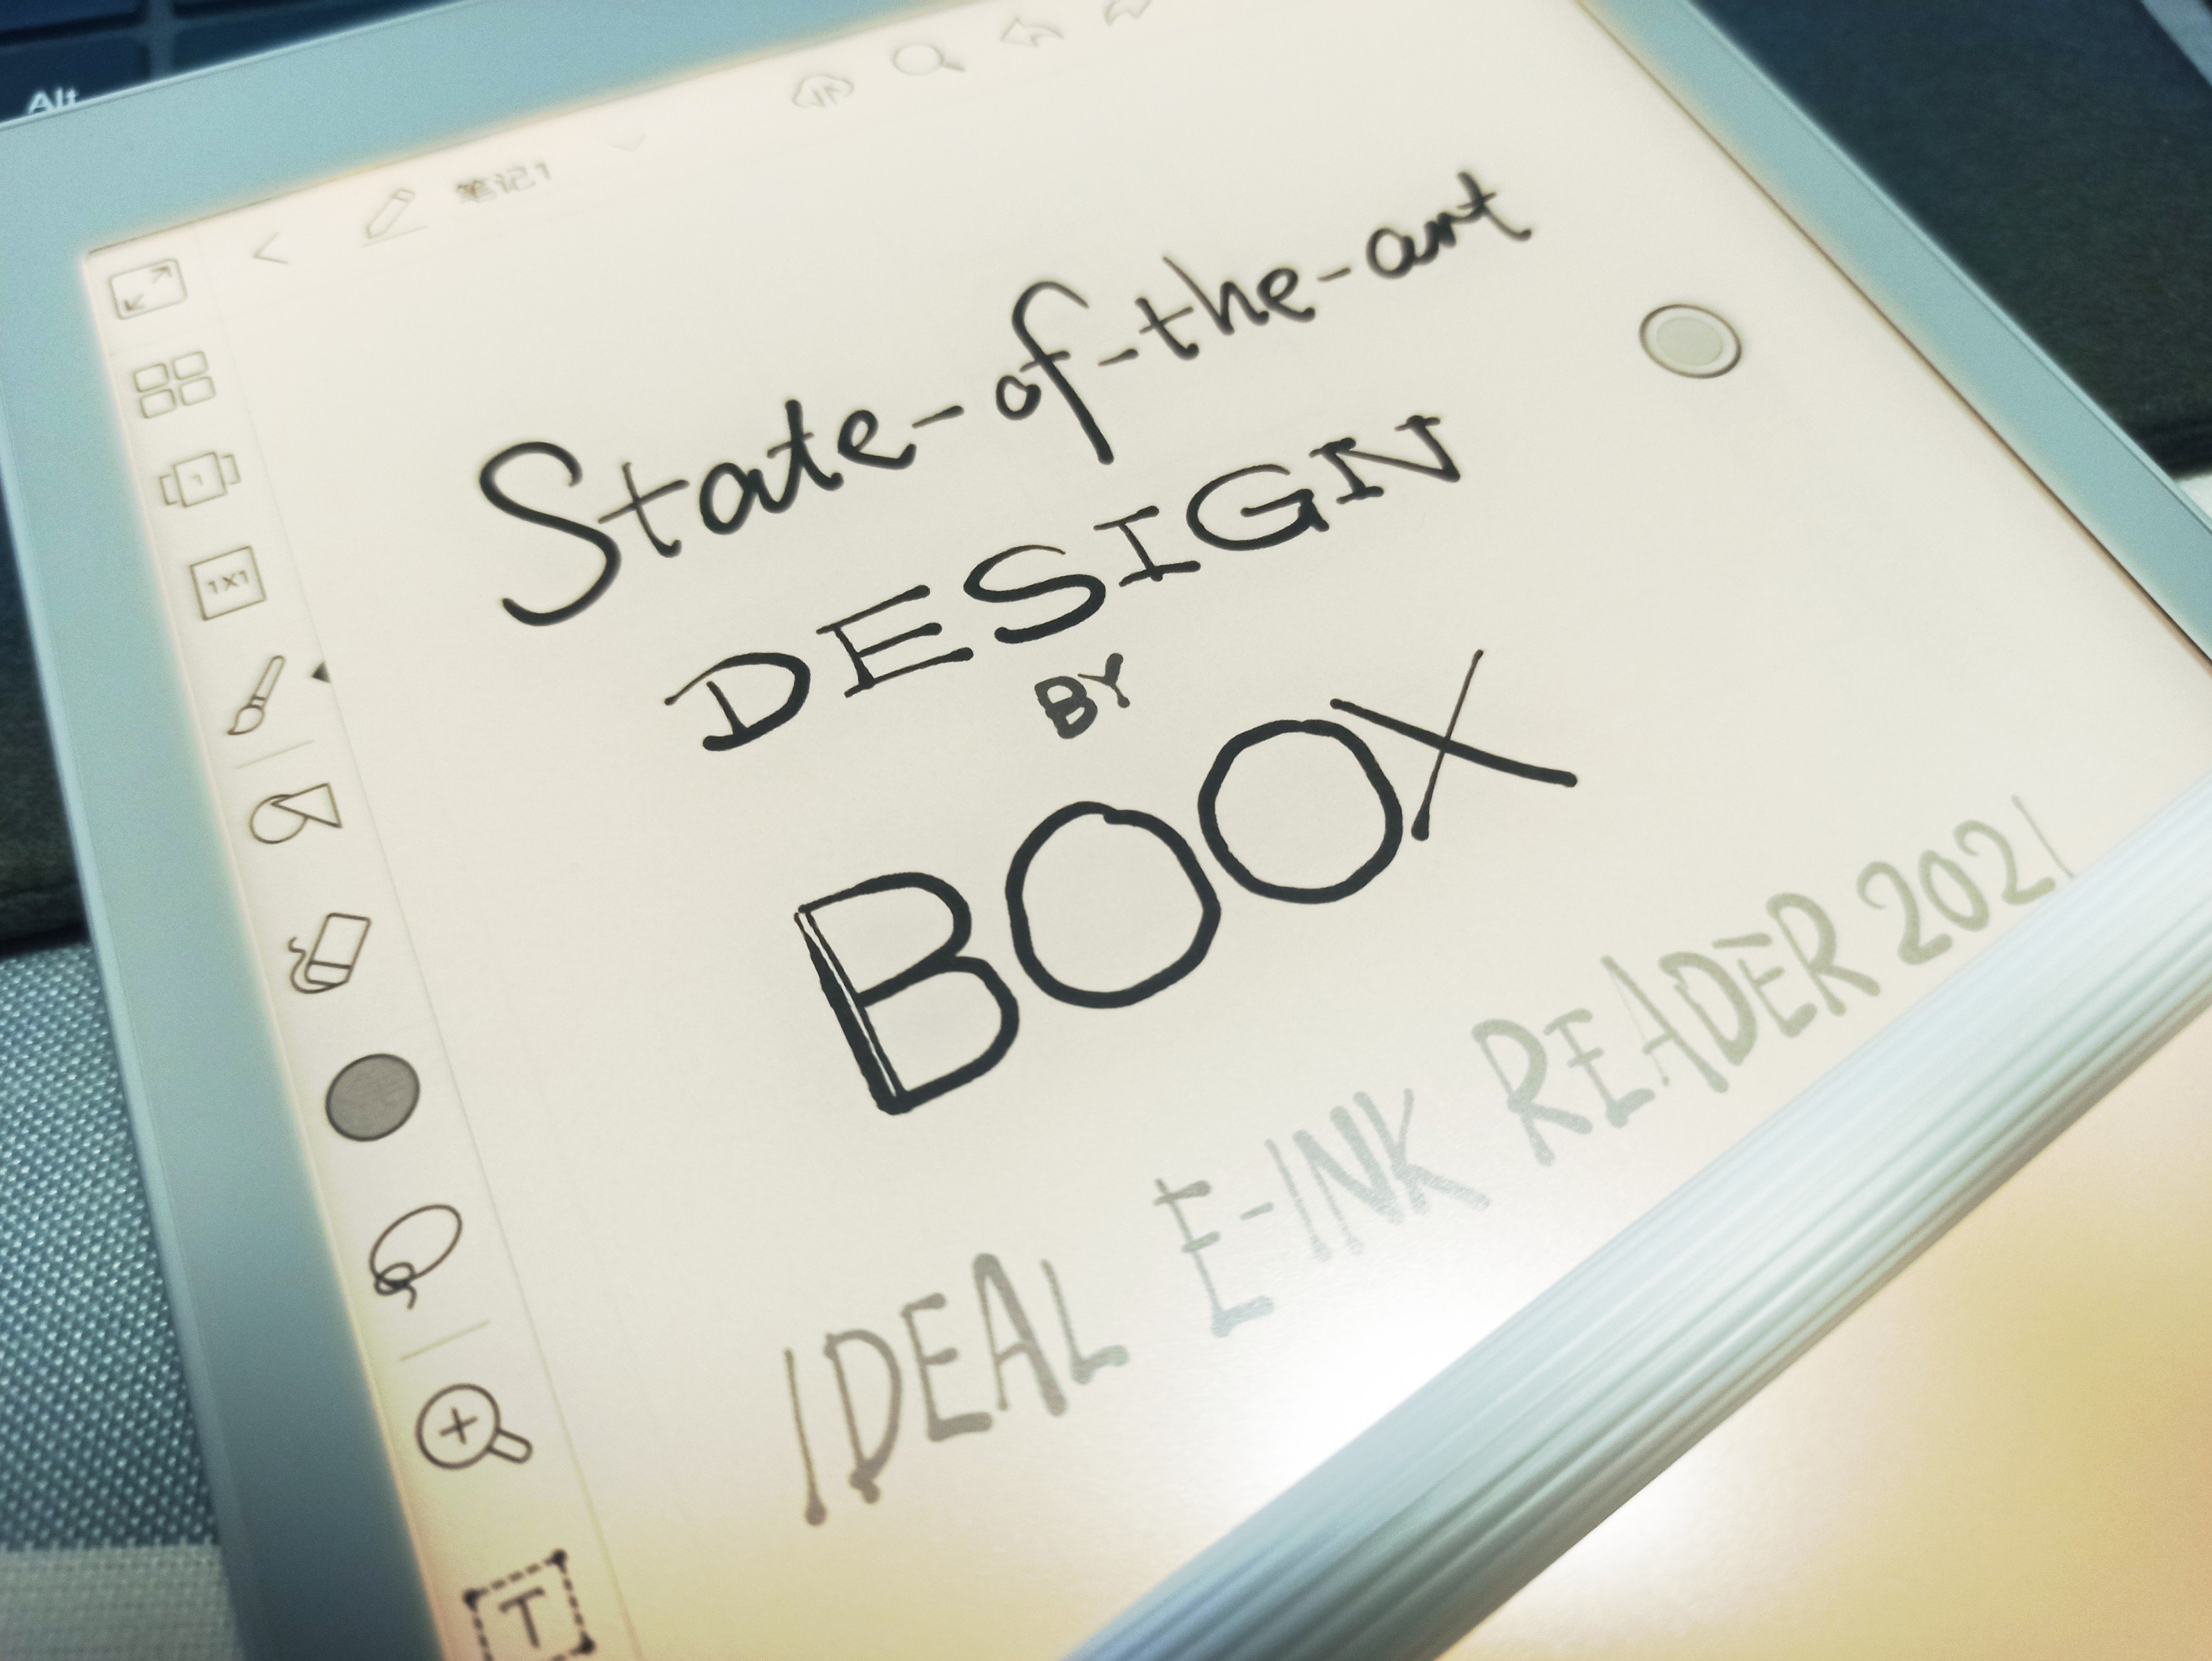 Alt
笔记1
State-of-the-art
DESIGN
BY
BOOX
IDEAL E-INK READER 2021
1
1X1
T